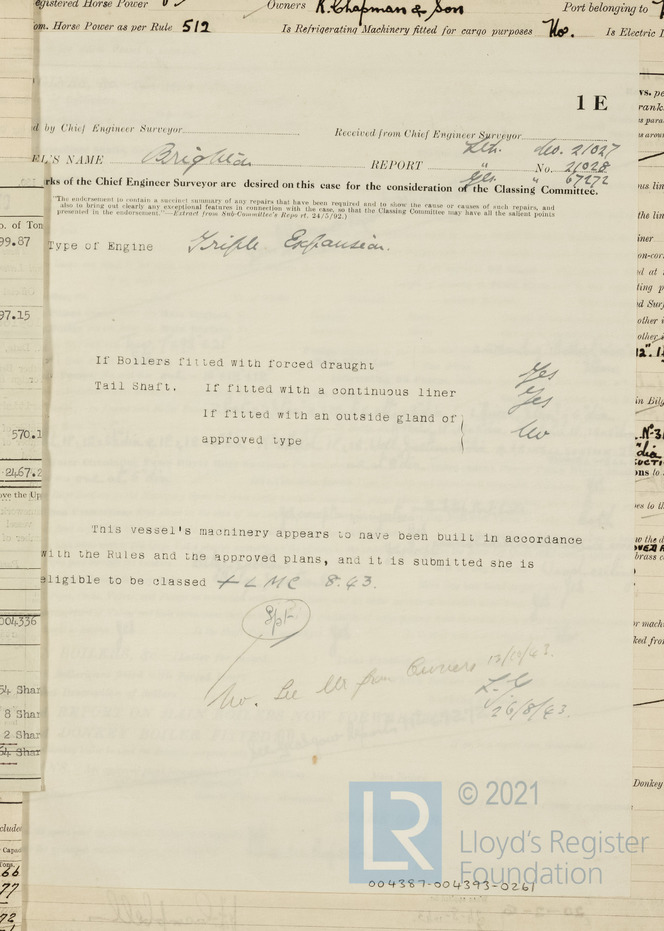 egistered Horse Power
Owners R. Chapman & Son
Port belonging to
om. Horse Power as per Rule 512
Is Refrigerating Machinery fitted for cargo purposes No.
Is Electric
1 E
d by Chief Engineer Surveyor
Received from Chief Engineer Surveyor
Lth. No. 21027
EL'S NAME Brighton REPORT " No. 21028
Gls. " 67272
rks of the Chief Engineer Surveyor are desired on this case for the consideration of the Classing Committee.
"The endorsement to contain a succinct summary of any repairs that have been required and to show the cause or causes of such repairs, and
also to bring out clearly any exceptional features in connection with the case, so that the Classing Committee may have all the salient points
presented in the endorsement."—Extract from Sub-Committee's Report, 24/5/02.)
o. of Ton
99.87
Type of Engine Triple Expansion.
97.15
If Boilers fitted with forced draught Yes
Tail Shaft. If fitted with a continuous liner Yes
If fitted with an outside gland of
approved type No
570.1
2467.2
This vessel's machinery appears to have been built in accordance
with the Rules and the approved plans, and it is submitted she is
eligible to be classed + LMC 8.43.
004336
Spt.
No. See Ltr from Owners 12/10/43.
26/8/43.
54 Shar
8 Shar
2 Shar
64 Shar
Donkey
© 2021
LR
Lloyd's Register
Foundation
004387-004393-0261